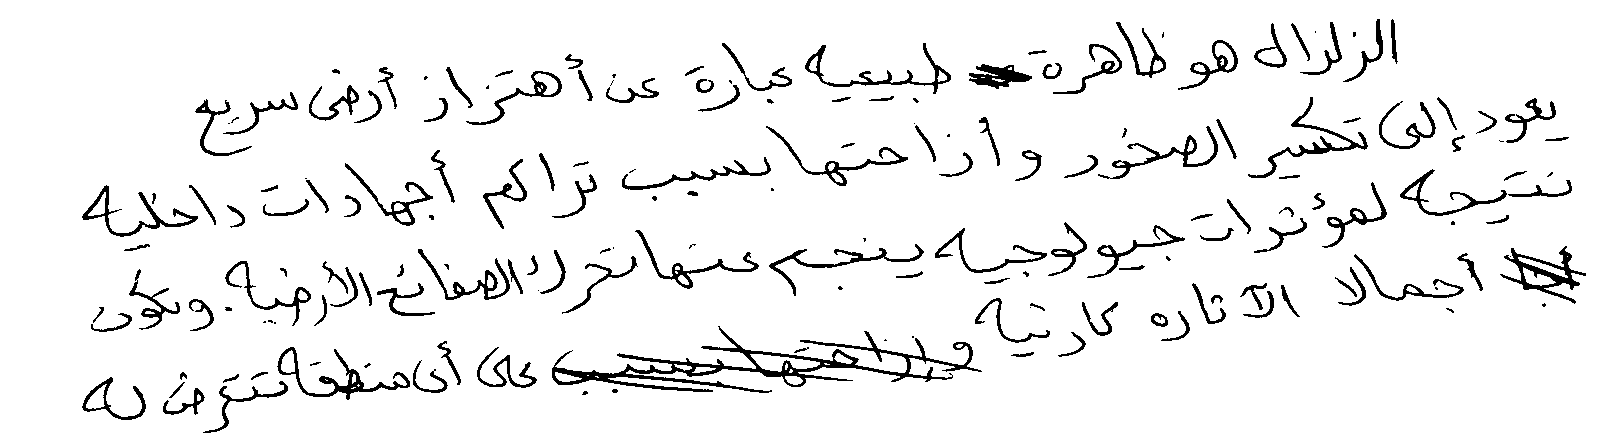 الزلزال هو ظاهرة طبيعيه عبارة عن أهتزاز أرضى سريع
يعود إلى تكسير الصخور وأزاحتها بسبب تراكم أجهادات داخليه
نتيجه لمؤثرات جيولوجيه ينجم عنها تحرك الصفائح الأرضيه. وتكون
أجمالا الآثاره كارثيه على أى منطقه تتعرض له